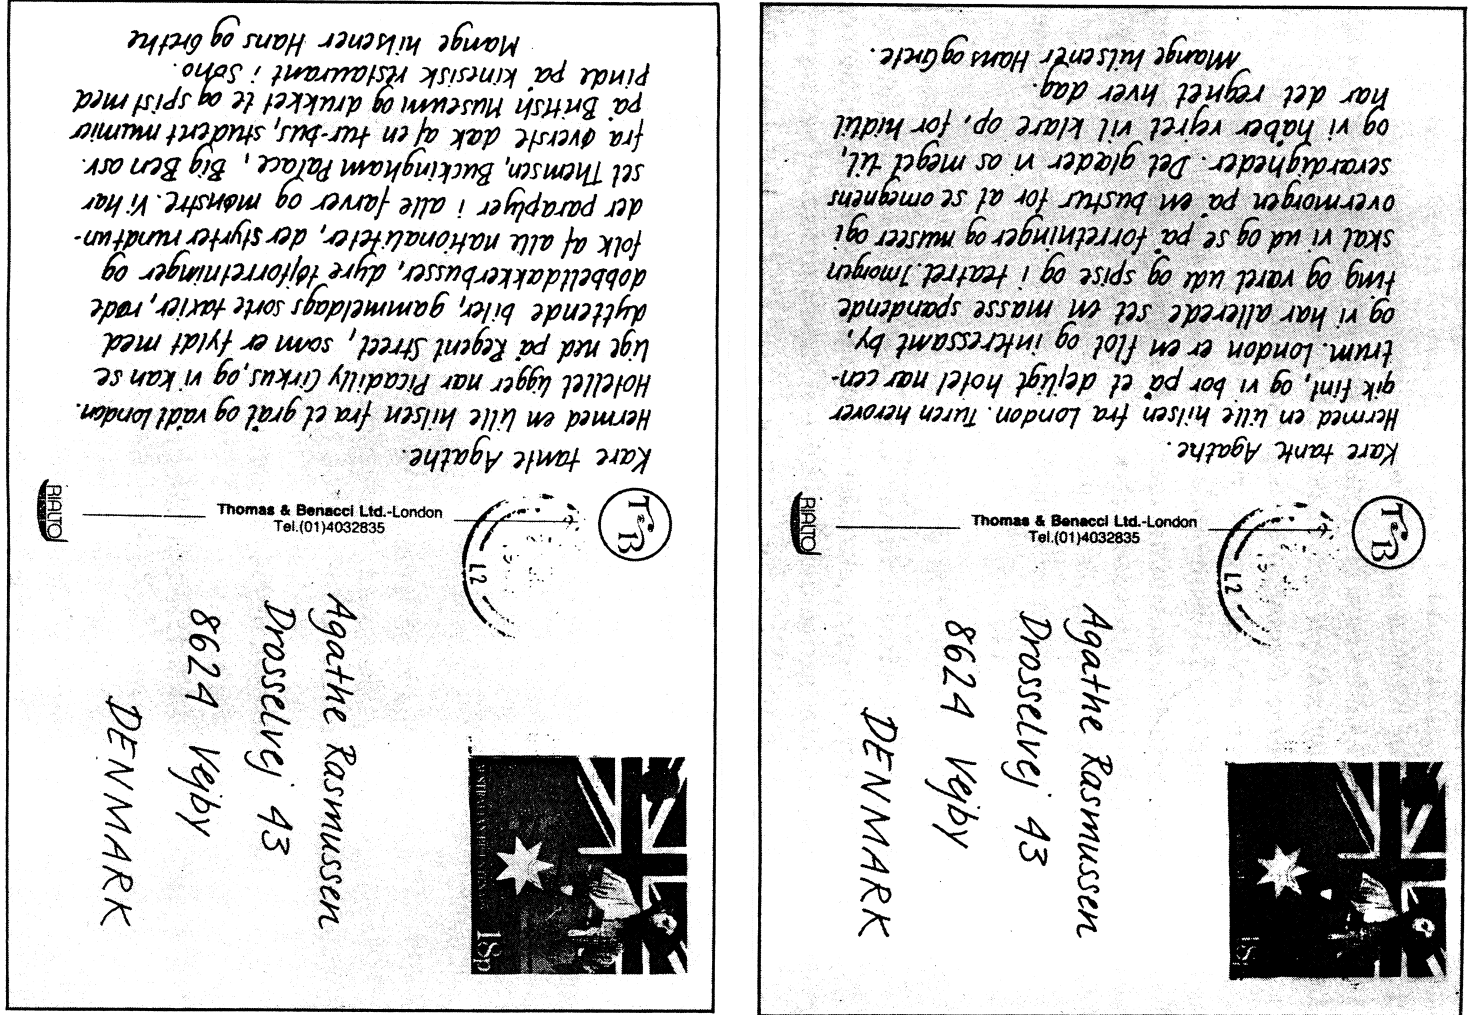 Kære tante Agathe.
Hermed en lille hilsen fra et gråt og vådt London.
Hotellet ligger nær Picadilly Cirkus, og vi kan se
lige ned på Regent Street, som er fyldt med
dyttende biler, gammeldags sorte taxier, røde
dobbeltdækkerbusser, dyre tøjforretninger og
folk af alle nationaliteter, der styrter rundt un-
der paraplyer i alle farver og mønstre. Vi har
set Themsen, Buckingham Palace, Big Ben osv.
fra øverste dæk af en tur-bus, studeret mumier
på British Museum og drukket te og spist med
pinde på kinesisk restaurant i Soho.
Mange hilsener Hans og Grethe
RIALTO
Thomas & Benacci Ltd.-London
Tel.(01)4032835
T&B
L2
Agathe Rasmussen
Drosselvej 43
8624 Vejby
DENMARK
18p
Kære tante Agathe.
Hermed en lille hilsen fra London. Turen herover
gik fint, og vi bor på et dejligt hotel nær cen-
trum. London er en flot og interessant by,
og vi har allerede set en masse spændende
ting og været ude og spise og i teatret. I morgen
skal vi ud og se på forretninger og museer og i
overmorgen på en bustur for at se omegnens
seværdigheder. Det glæder vi os meget til,
og vi håber vejret vil klare op, for hidtil
har det regnet hver dag.
Mange hilsener Hans og Grete.
RIALTO
Thomas & Benacci Ltd.-London
Tel.(01)4032835
T&B
L2
Agathe Rasmussen
Drosselvej 43
8624 Vejby
DENMARK